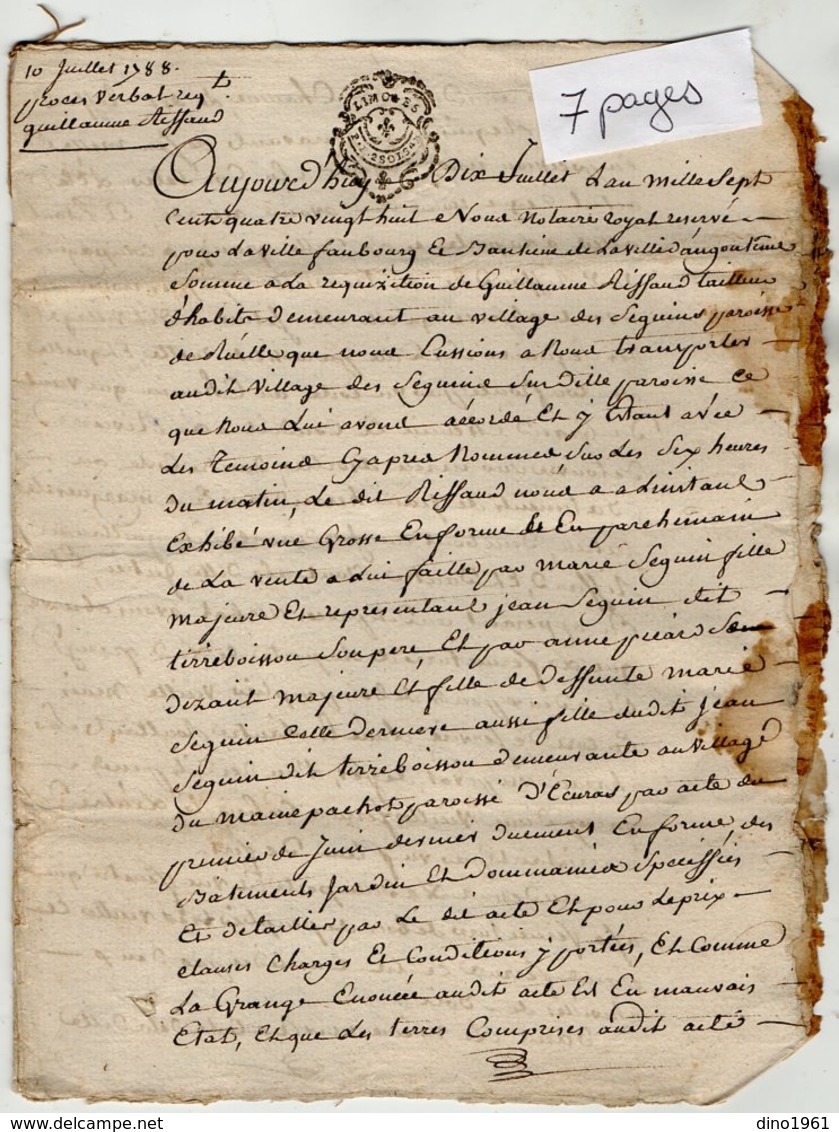 10 Juillet 1788.
proces verbal req.t
guillaume Riffaud
7 pages
LIMOGES
Aujourd'huy Dix Juillet Lan mille Sept
Cents quatre vingt huit e Nous Notaire royal reservé
pour La ville faubourg Et Banlieue de La ville d'angoulême
Somme a La requizition de Guillaume Riffaud tailleur
d'habits Demeurant au village des Seguins paroisse
de Ruelle que nous Eussions a Nous transporter
audit village des Seguins Sus ditte paroisse ce
que Nous Lui avons accordé Et y Etant avec
Les Temoins Cy apres Nommes Sur Les Six heures
Du matin, Le dit Riffaud nous a a Linstant
Exhibé une Grosse En forme Et En parchemain
de La vente a Lui faitte par marie Seguin fille
majeure Et representant jean Seguin dit
tirreboisson Son pere Et par anne picard Se
dizant majeure Et fille de deffunte marie
Seguin Cette derniere aussi fille dudit jean
Seguin dit tirreboisson demeurante au village
du mainepachot paroisse d'Ecuras par acte du
premier de Juin dernier duement En forme, des
Batiments Jardin Et Dommaines Speciffiés
Et detailles par Le dit acte Et pour Le prix
clauses Charges Et Conditions y portées, Et Comme
La Grange Enoncée audit acte Est En mauvais
Etat, Et que Les terres Comprises audit acte
dino1961